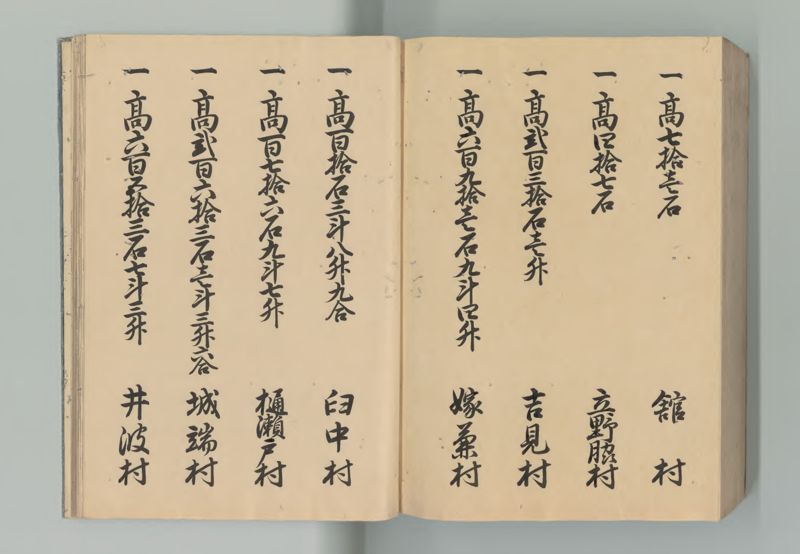 一 高七拾壱石 舘村
一 高四拾七石 立野脇村
一 高弐百三拾石壱升 吉見村
一 高六百九拾壱石九斗四升 嫁兼村
一 高百拾石三斗八升九合 臼中村
一 高百七拾六石九斗七升 樋瀬戸村
一 高弐百六拾三石壱斗三升六合 城端村
一 高六百五拾三石七斗三升 井波村